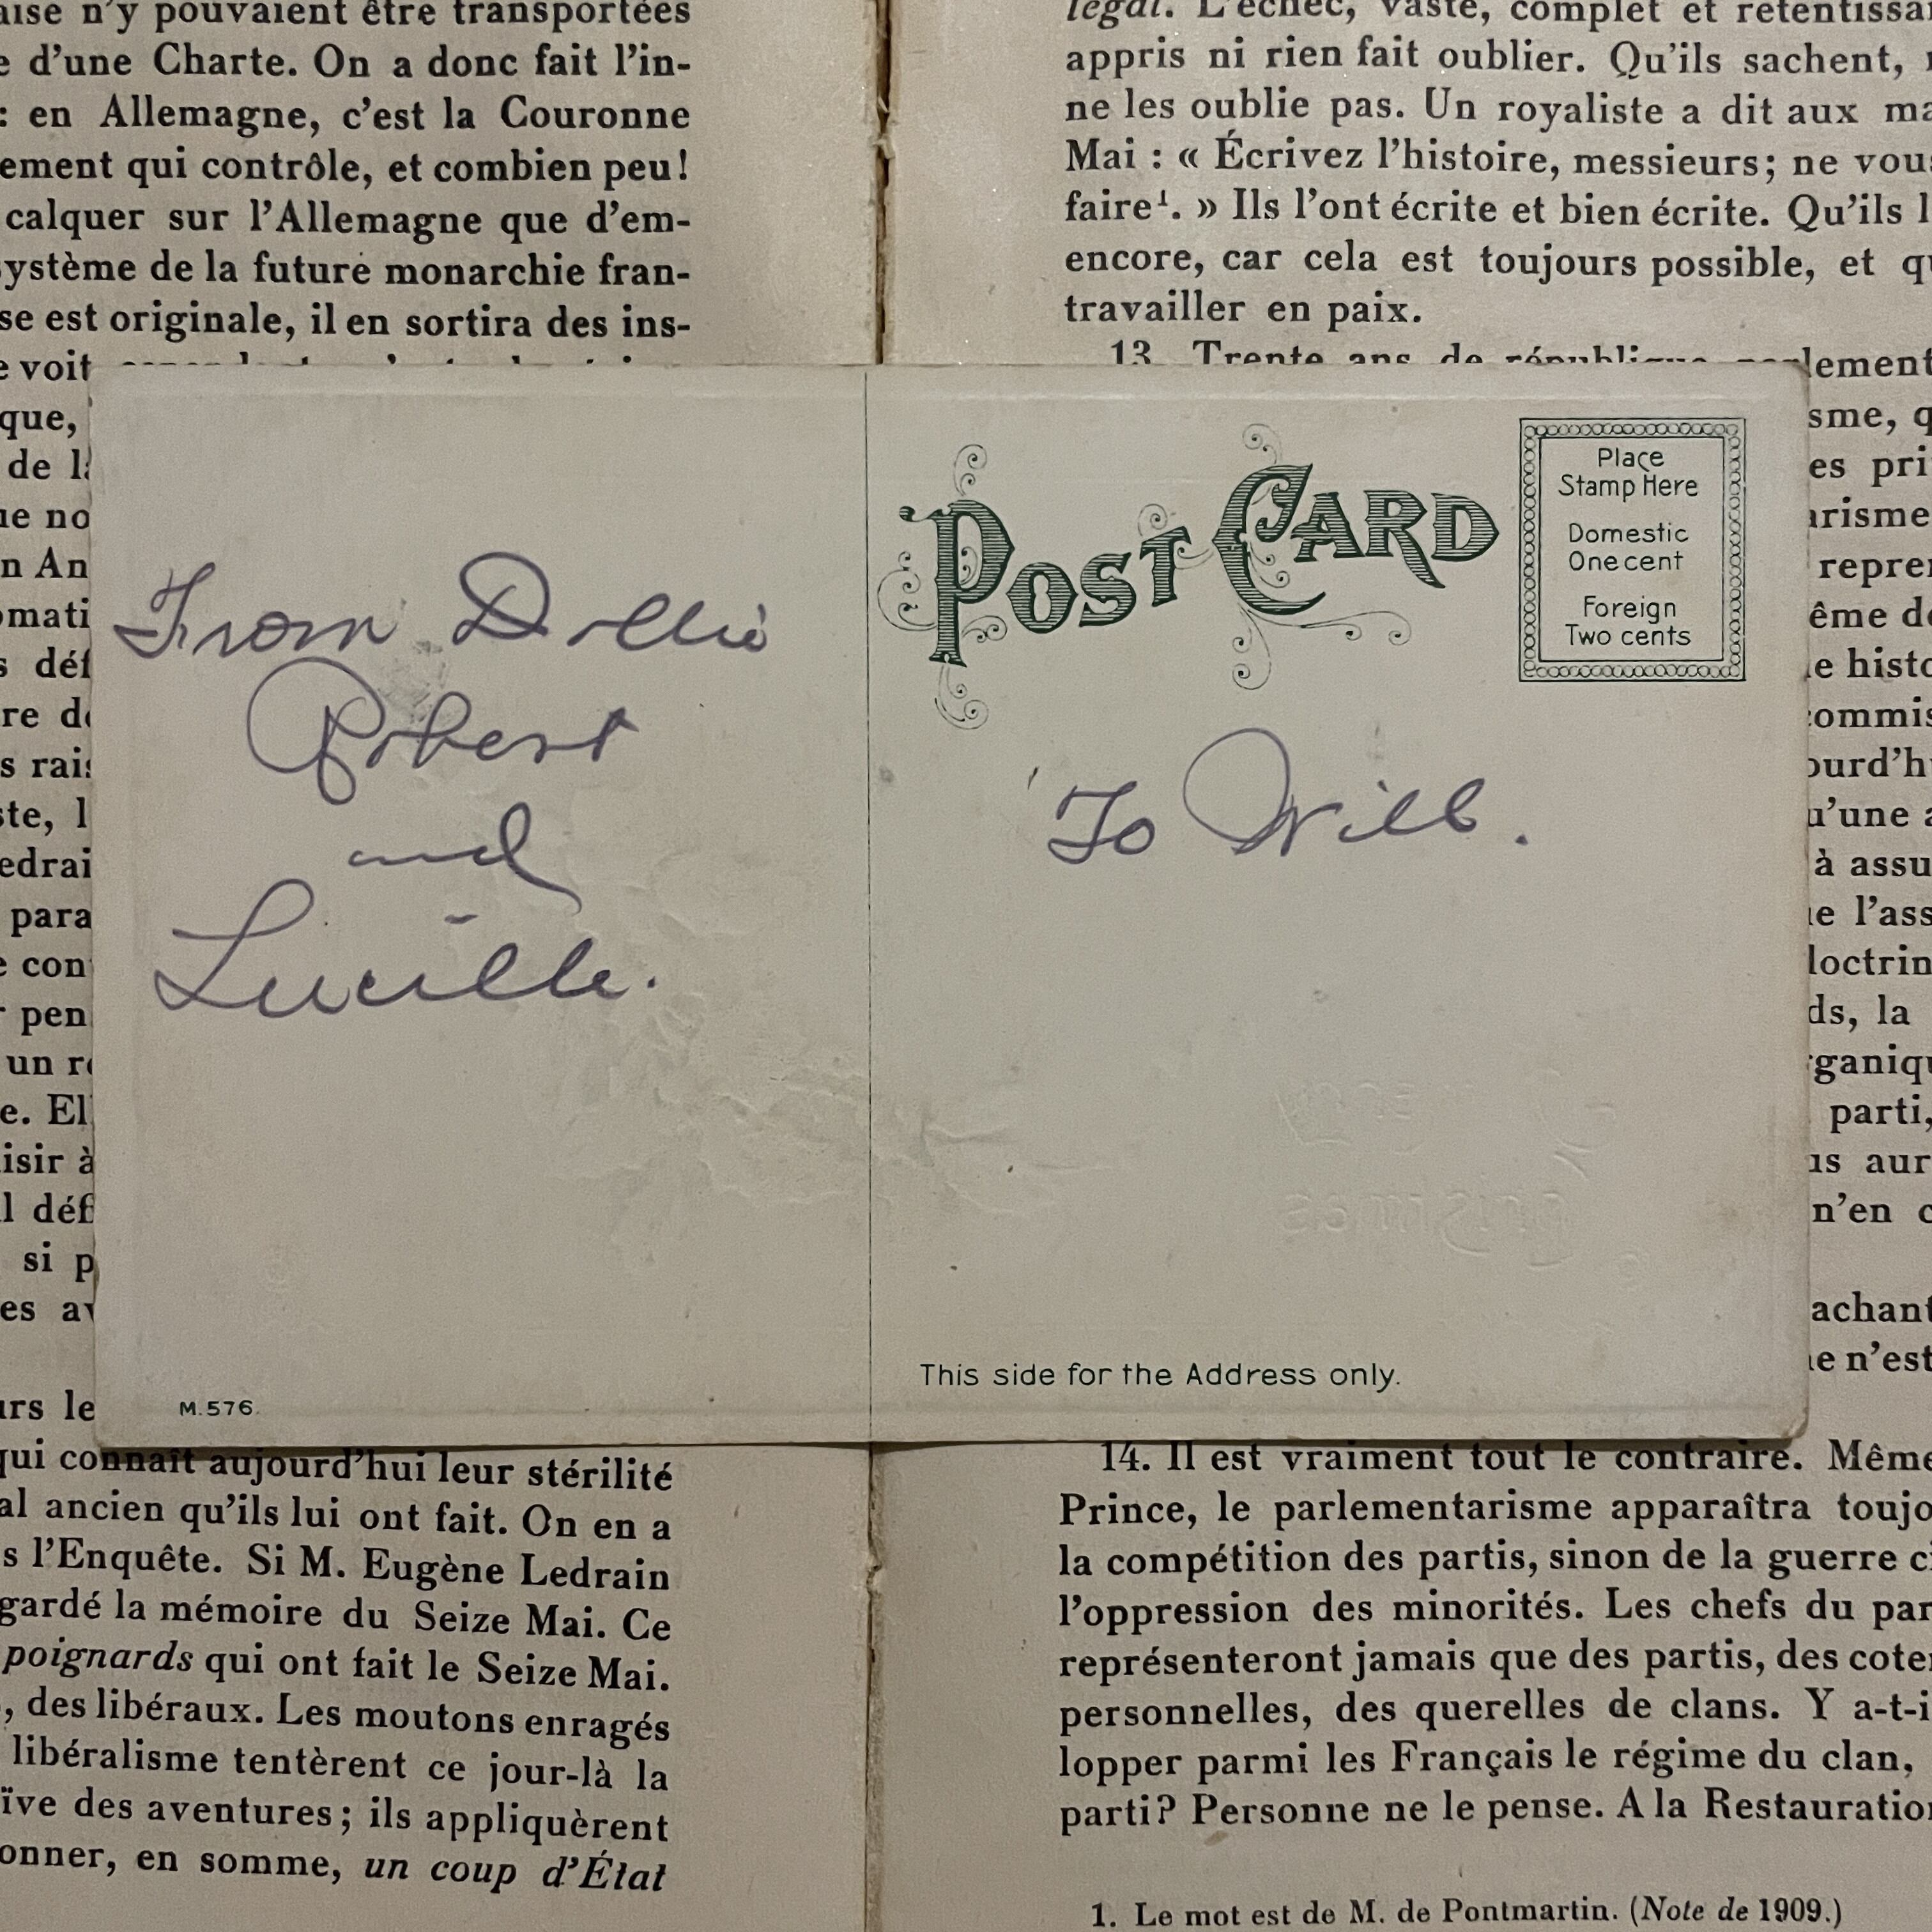 n'y pouvaient être transportées
d'une Charte. On a donc fait l'in-
: en Allemagne, c'est la Couronne
qui contrôle, et combien peu!
calquer sur l'Allemagne que d'em-
système de la future monarchie fran-
est originale, il en sortira des ins-
voit
que,
de
no
An
déf
re
rais
ste, l
edrai
para
con
pen
un
e. El
isir à
l déf
si p
es
urs le
qui connaît aujourd'hui leur stérilité
al ancien qu'ils lui ont fait. On en a
s l'Enquête. Si M. Eugène Ledrain
gardé la mémoire du Seize Mai. Ce
poignards qui ont fait le Seize Mai.
, des libéraux. Les moutons enragés
libéralisme tentèrent ce jour-là la
ïve des aventures; ils appliquèrent
onner, en somme, un coup d'État
From Dollie
Robert
and
Lucille.
M.576.
POST CARD
Place
Stamp Here
Domestic
One cent
Foreign
Two cents
To Will.
This side for the Address only.
légal. L'échec, vaste, complet et retentissa
appris ni rien fait oublier. Qu'ils sachent,
ne les oublie pas. Un royaliste a dit aux ma
Mai : « Écrivez l'histoire, messieurs; ne vous
faire¹. » Ils l'ont écrite et bien écrite. Qu'ils l
encore, car cela est toujours possible, et qu
travailler en paix.
13. Trente ans de république parlement
sme, q
es pri
arisme
repre
ême de
e histo
commis
ourd'h
u'une a
à assu
l'ass
doctrin
ds, la
rganiqu
parti,
us aur
n'en c
achant
n'est
14. Il est vraiment tout le contraire. Même
Prince, le parlementarisme apparaîtra toujo
la compétition des partis, sinon de la guerre ci
l'oppression des minorités. Les chefs du par
représenteront jamais que des partis, des coter
personnelles, des querelles de clans. Y a-t-i
lopper parmi les Français le régime du clan,
parti? Personne ne le pense. A la Restauration
1. Le mot est de M. de Pontmartin. (Note de 1909.)